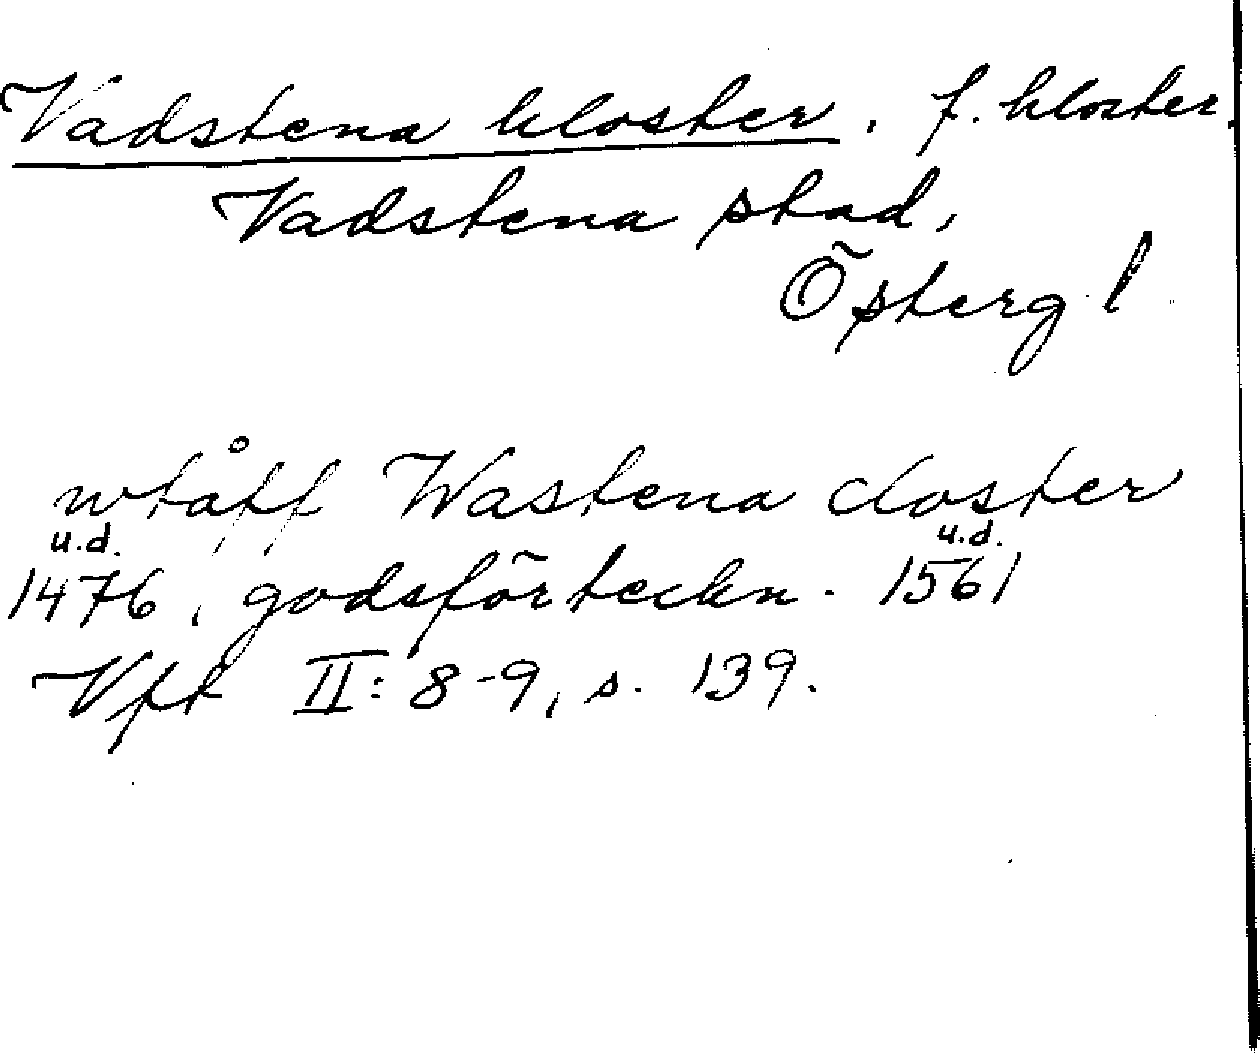 Vadstena kloster. f. kloster.
Vadstena stad,
Östergl
wtåff Wastena closter
u.d. u.d.
1476, godsförteckn. 1561
Vfk II: 8-9, s. 139.